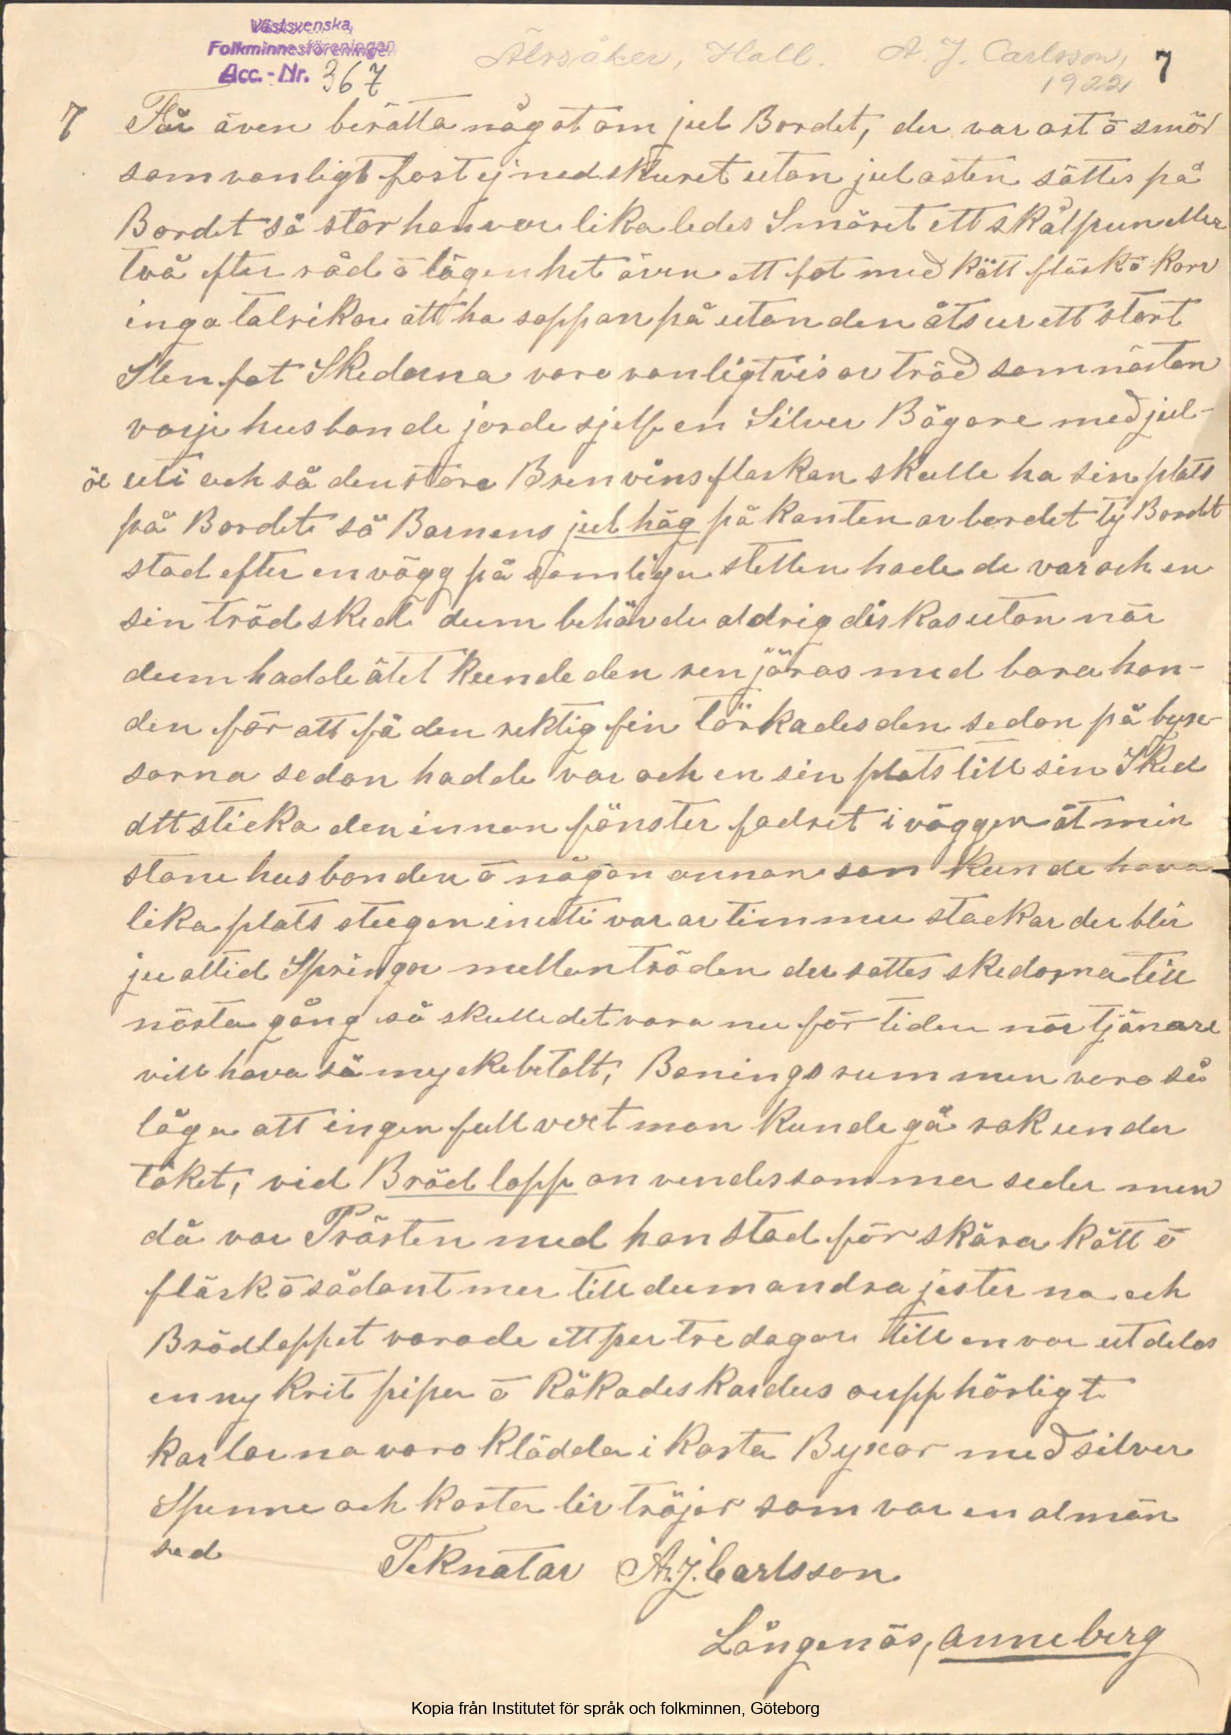 Västsvenska
Folkminnesföreningen
Acc.-Nr. 367
Älvsåker, Hall. A. J. Carlsson,
1922
7
7 Får även berätta något om jul Bordet, der var ost ö smör
som vanligt fast ej nedskuret utan julosten sattes på
Bordet så stor han var lika ledes Smöret ett skålpun eller
två efter råd ö lägenhet även ett fat med kött fläsk ö korv
inga talrikar att ha soppan på utan den åts ur ett stort
Stenfat Skedarna voro vanligtvis av träd som nästan
varje husbonde jorde sjelf en Silver Bägare med jul-
öl uti och så den store Brenvinsflaskan skulle ha sin plats
på Bordet så Barnens jul hög på kanten av bordet ty Bordet
stod efter en vägg på somliga stellen hade de var och en
sin trädsked dum behövde aldrig diskas utan när
dum hadde ätet kunde den renjöras med bara han-
den för att få den riktig fin törkades den sedan på byxe-
sorna sedan hadde var och en sin plats till sin Sked
att sticka den innan fönster fodret i väggen åt min
stone husbonden ö någon annan som kunde hava
lika plats stugan inuti var av timmer stockar der blir
ju altid Springor mellan träden der sattes skedarna till
nästa gång så skulle det vara nu för tiden när tjänare
vill hava så mycke betalt, Boningsrummen voro så
låga att ingen full vext man kunde gå rak under
taket, vid Brödlopp anvendes samma seder men
då var Prästen med han stod för skära kött ö
fläsk ö sådant mer till dum andra jesterna och
Brödloppet varade ett par tre dagar till en var utdelas
en ny krit pipa ö Rökades kardus oupphörligt
karlarna voro klädda i korta Byxor med silver
Spenne och korta livtröjor som var en almän
sed
Teknatar A. J. Carlsson
Långenäs, Anneberg
Kopia från Institutet för språk och folkminnen, Göteborg